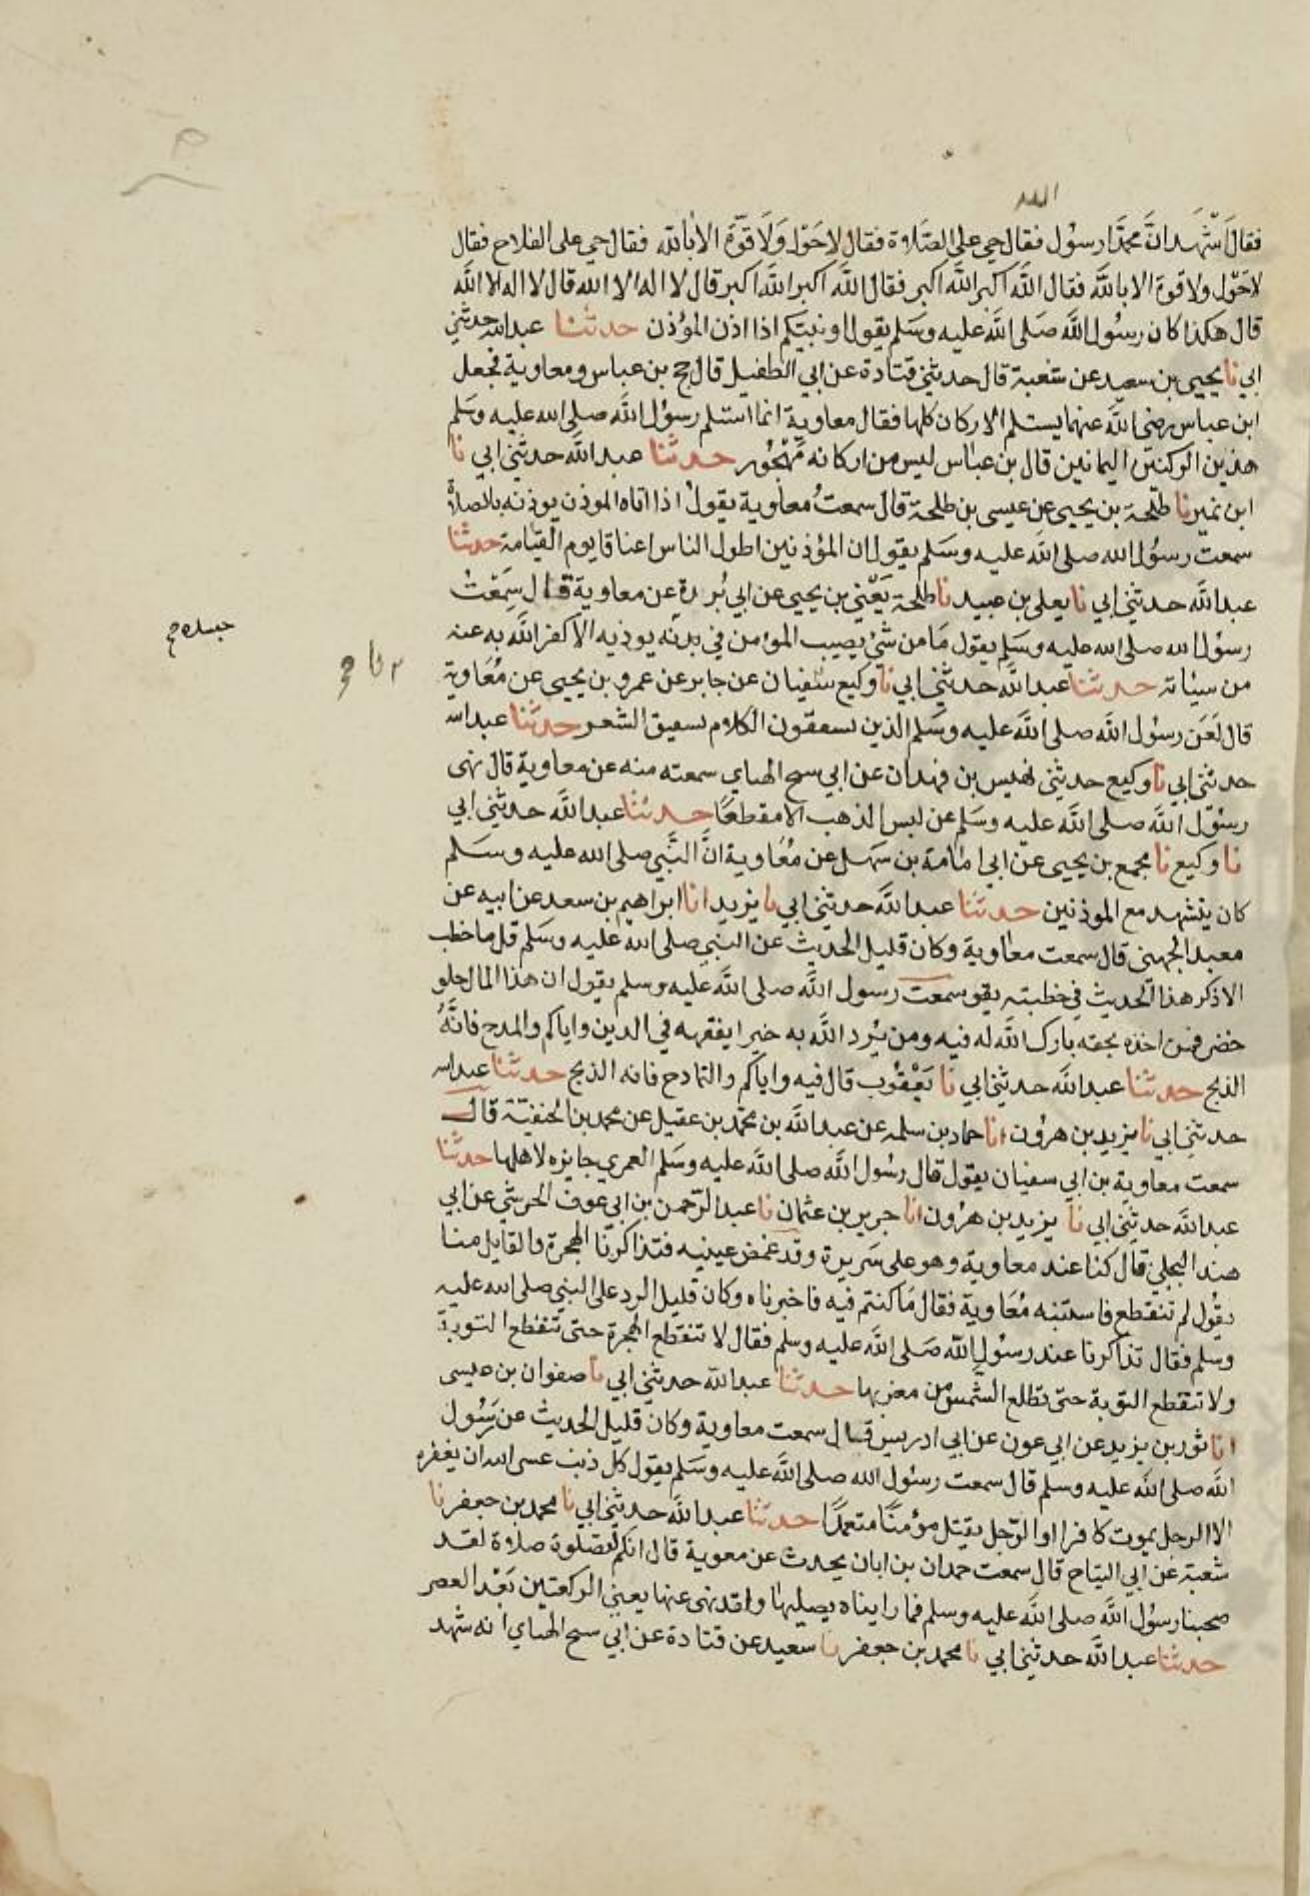 الله
فقال اشهد ان محمدا رسول فقال حي على الصلاة فقال لا حول ولا قوة الا بالله فقال حي على الفلاح فقال
لا حول ولا قوة الا بالله فقال الله اكبر الله اكبر فقال الله اكبر الله اكبر قال لا اله الا الله قال لا اله الا الله
قال هكذا كان رسول الله صلى الله عليه وسلم يقول او نبيكم اذا اذن المؤذن حدثنا عبد الله حدثني
ابي نا يحيى بن سعيد عن شعبة قال حدثني قتادة عن ابي الطفيل قال حج بن عباس ومعاوية فجعل
ابن عباس رضي الله عنهما يستلم الاركان كلها فقال معاوية انما استلم رسول الله صلى الله عليه وسلم
هذين الركنين اليمانيين قال بن عباس ليس من اركانه مهجور حدثنا عبد الله حدثني ابي نا
ابن نمير نا طلحة بن يحيى عن عيسى بن طلحة قال سمعت معاوية يقول اذا اتاه الموذن يوذنه بالصلاة
سمعت رسول الله صلى الله عليه وسلم يقول ان المؤذنين اطول الناس اعناقا يوم القيامة حدثنا
عبد الله حدثني ابي نا يعلى بن عبيد نا طلحة يعني بن يحيى عن ابي بردة عن معاوية قال سمعت
رسول الله صلى الله عليه وسلم يقول ما من شئ يصيب المؤمن في بدنه يوذيه الا كفر الله به عنه
من سيئاته حدثنا عبد الله حدثني ابي نا وكيع سفيان عن جابر عن عمرو بن يحيى عن معاوية
قال لعن رسول الله صلى الله عليه وسلم الذين يسعقون الكلام يسعيق الشعر حدثنا عبد الله
حدثني ابي نا وكيع حدثني نهيس بن فهدان عن ابي سح الهناي سمعته منه عن معاوية قال نهى
رسول الله صلى الله عليه وسلم عن لبس الذهب الا مقطعا حدثنا عبد الله حدثني ابي
نا وكيع نا مجمع بن يحيى عن ابي امامة بن سهل عن معاوية ان النبي صلى الله عليه وسلم
كان يتشهد مع الموذنين حدثنا عبد الله حدثني ابي نا يزيد انا ابراهيم بن سعد عن ابيه عن
معبد الجهني قال سمعت معاوية وكان قليل الحديث عن النبي صلى الله عليه وسلم قل ما خطب
الا ذكر هذا الحديث في خطبته يقو سمعت رسول الله صلى الله عليه وسلم يقول ان هذا المال حلو
خضر فمن اخذه بحقه بارك الله له فيه ومن يرد الله به خيرا يفقهه في الدين واياكم والمدح فانه
الذبح حدثنا عبد الله حدثني ابي نا يعقوب قال فيه واياكم والتمادح فانه الذبح حدثنا عبد الله
حدثني ابي نا يزيد بن هرون انا حماد بن سلمه عن عبد الله بن محمد بن عقيل عن محمد بن الحنفية قال
سمعت معاوية بن ابي سفيان يقول قال رسول الله صلى الله عليه وسلم العمري جايزه لاهلها حدثنا
عبد الله حدثني ابي نا يزيد بن هرون انا جرير بن عثمان نا عبد الرحمن بن ابي عوف الجرشي عن ابي
هند البجلي قال كنا عند معاوية وهو على سريرة وقد غمض عينيه فتذاكرنا الهجرة والقايل منا
يقول لم تنقطع فاستنبه معاوية فقال ما كنتم فيه فاخبرناه وكان قليل الرد على النبي صلى الله عليه
وسلم فقال تذاكرنا عند رسول الله صلى الله عليه وسلم فقال لا تنقطع الهجرة حتى تنقطع التوبة
ولا تنقطع التوبة حتى تطلع الشمس من مغربها حدثنا عبد الله حدثني ابي نا صفوان بن عيسى
انا ثور بن يزيد عن ابي عون عن ابي ادريس قال سمعت معاوية وكان قليل الحديث عن رسول
الله صلى الله عليه وسلم قال سمعت رسول الله صلى الله عليه وسلم يقول كل ذنب عسى الله ان يغفره
الا الرجل يموت كافرا او الرجل يقتل مؤمنا متعمدا حدثنا عبد الله حدثني ابي نا محمد بن جعفر نا
شعبة عن ابي التياح قال سمعت حمدان بن ابان يحدث عن معوية قال انكم لتصلوة صلاوة لقد
صحبنا رسول الله صلى الله عليه وسلم فما رايناه يصليها ولقد نهى عنها يعني الركعتين بعد العصر
حدثنا عبد الله حدثني ابي نا محمد بن جعفر نا سعيد عن قتادة عن ابي سح الهناي انه شهد